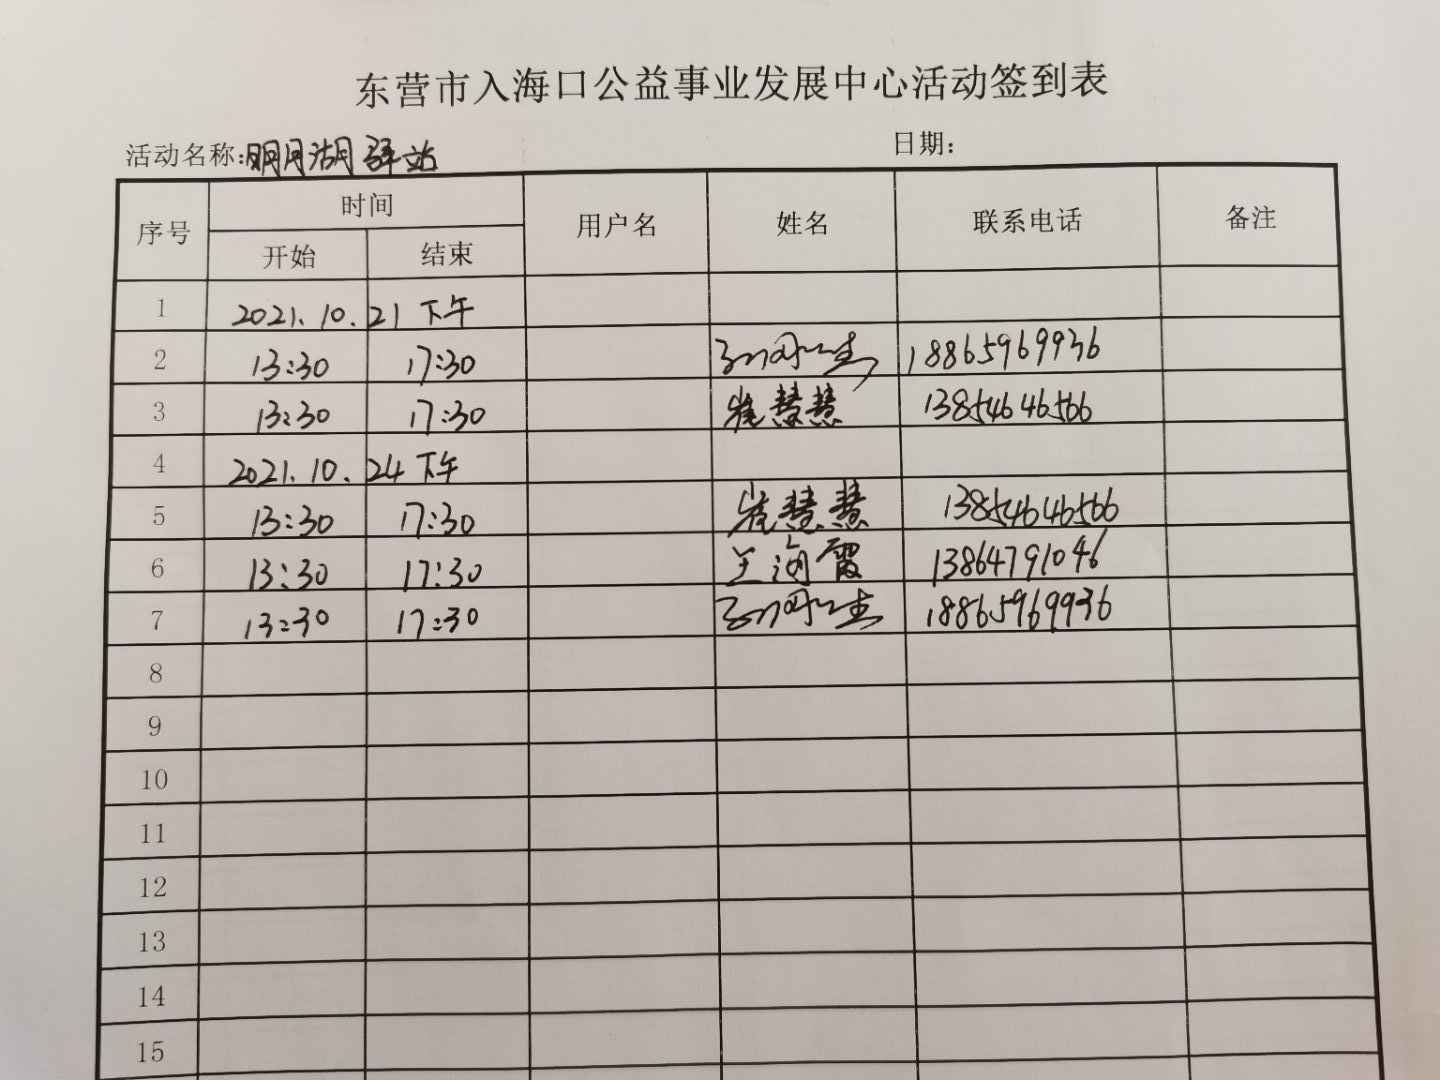 东营市入海口公益事业发展中心活动签到表
活动名称:明月湖驿站 日期:
序号 时间 用户名 姓名 联系电话 备注
开始 结束
1 2021.10.21下午
2 13:30 17:30 18865969936
3 13:30 17:30 崔慧慧 13854646566
4 2021.10.24下午
5 13:30 17:30 崔慧慧 13854646566
6 13:30 17:30 王海霞 13864791046
7 13:30 17:30 18865969936
8
9
10
11
12
13
14
15